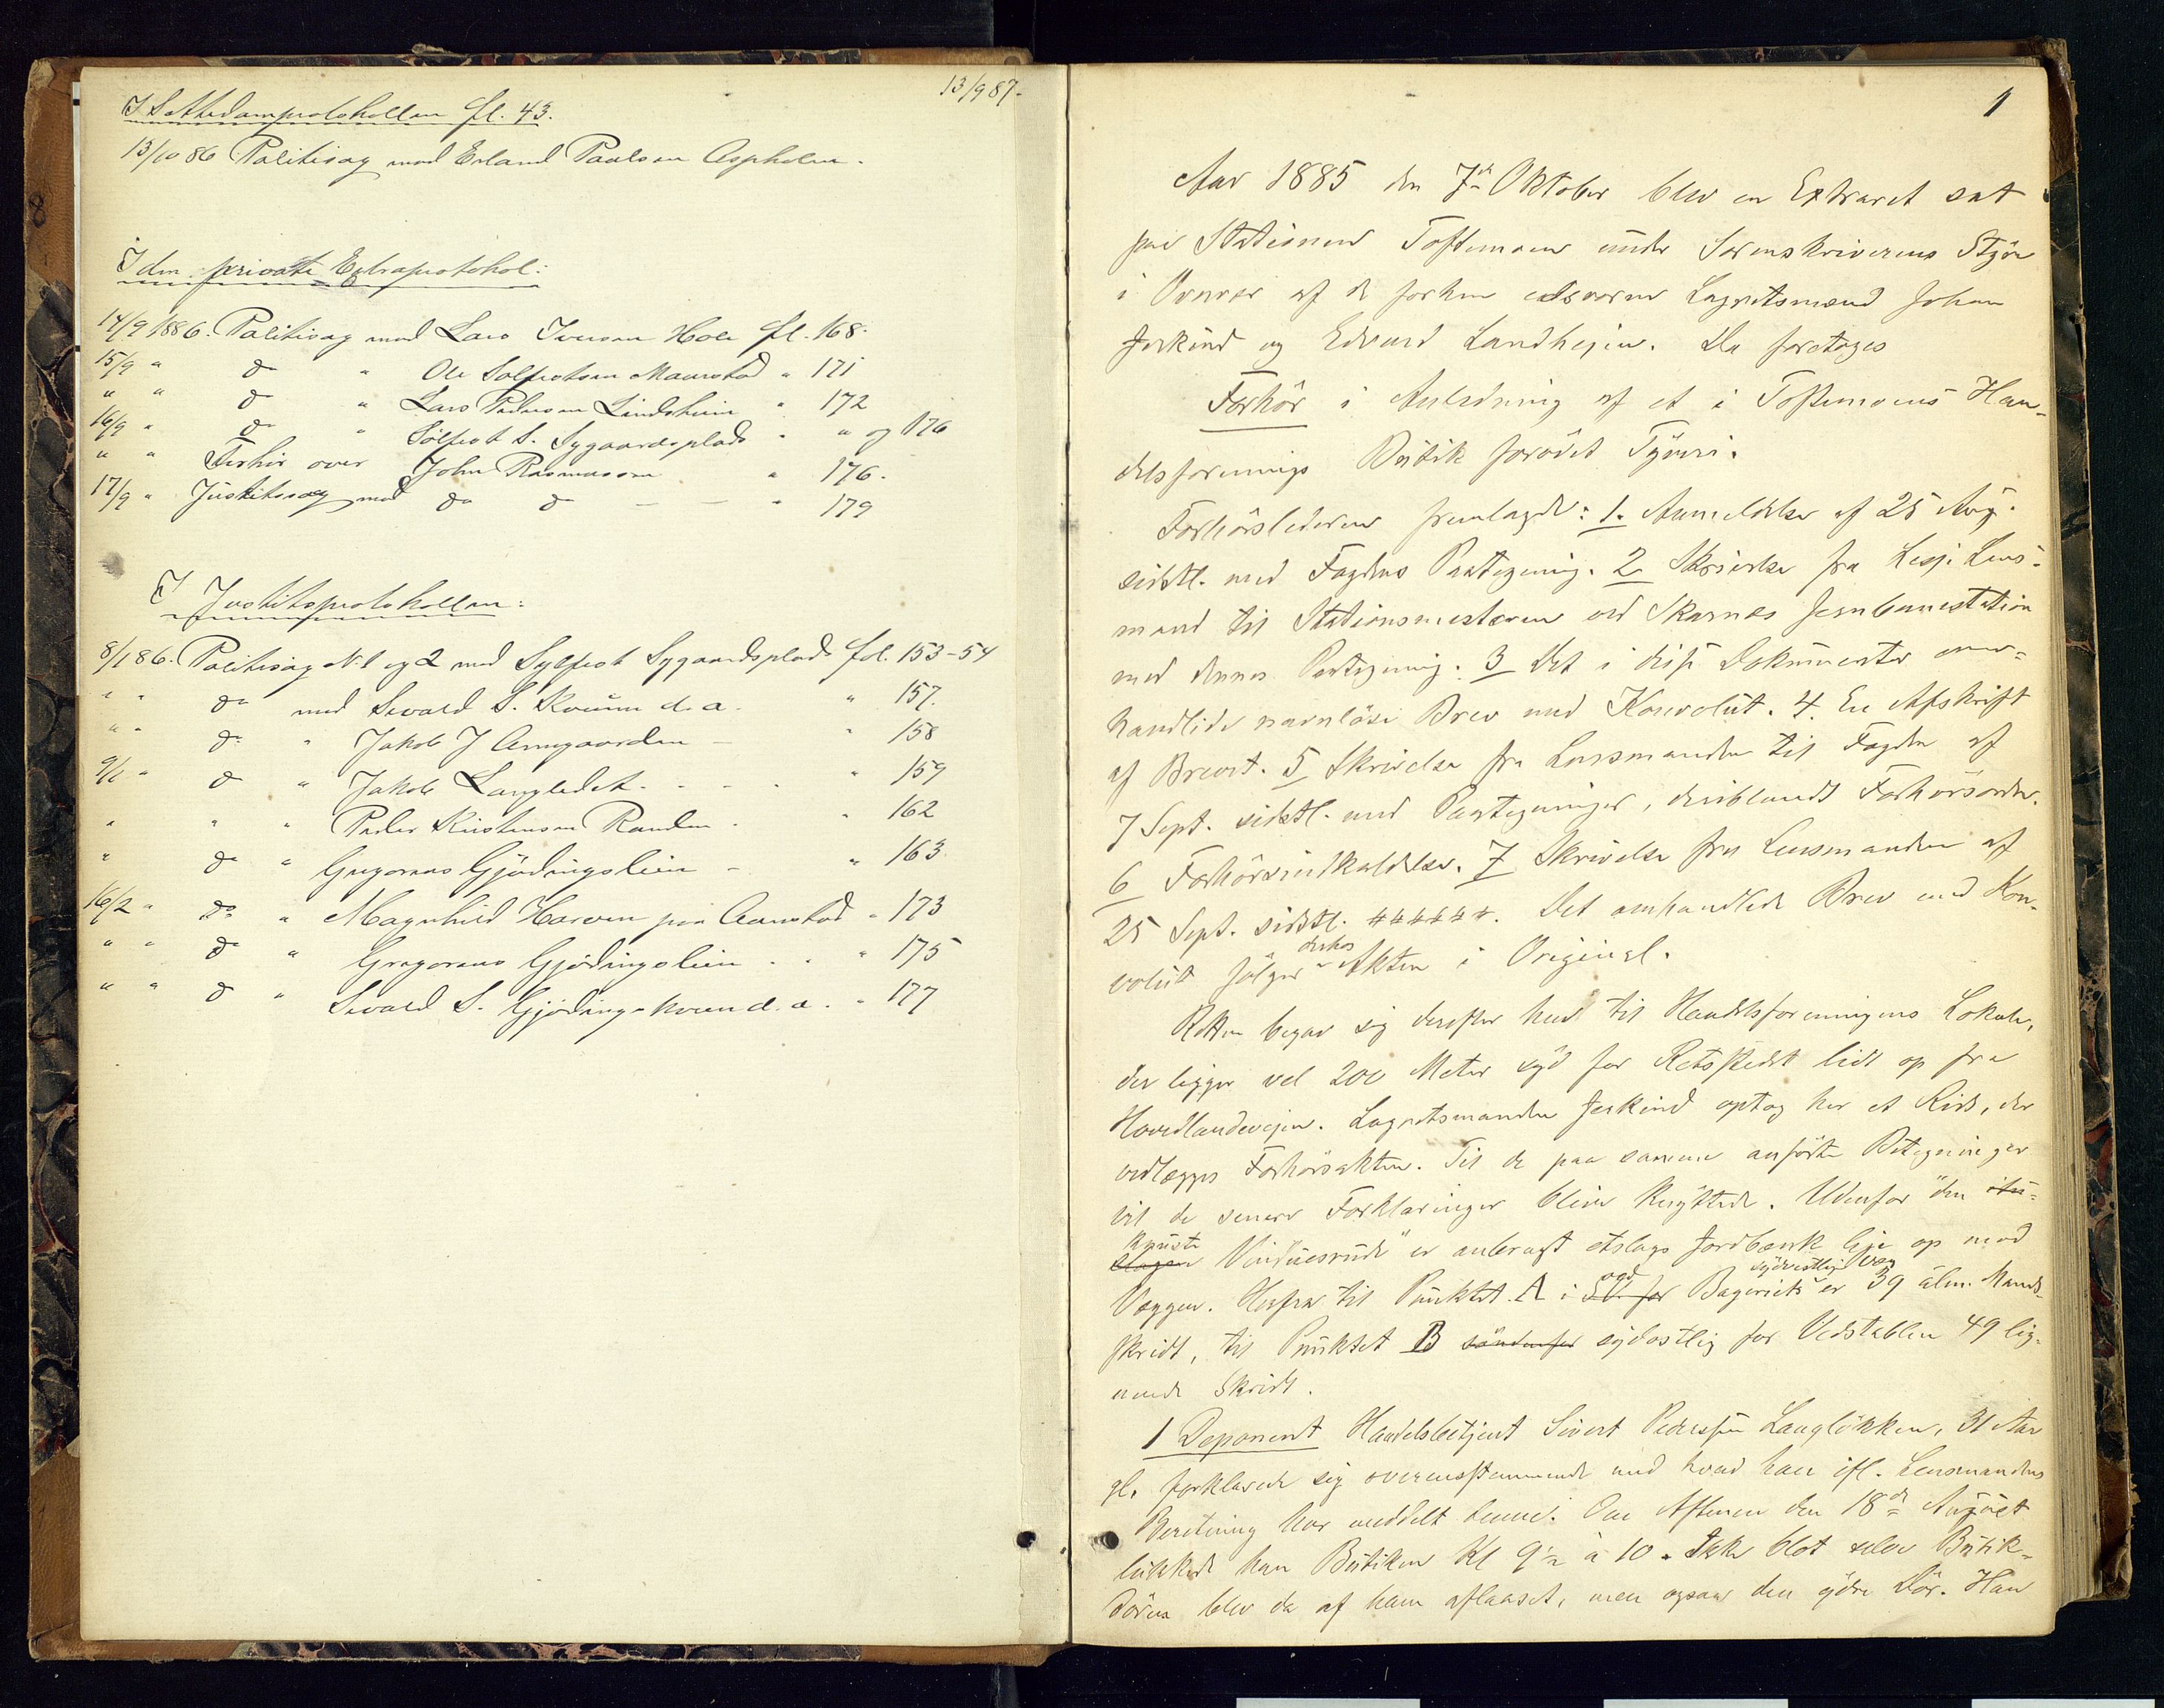 13/9 87.
I Sættedomprotokollen fl. 43.
13/10 86 Politisag mod Erland Paulsen Aspholm.
I den private Extraprotokol:
14/9 1886. Politisag mod Lars Iversen Hole fl. 168.
15/9 " do " Ole Solfestsen Maurstad " 171
" " do " Lars Pedersen Lindsheim " 172
16/9 " do " Sølfest S. Sygaardsplads " " og 176
" " Forhør over John Rasmussen " 176.
17/9 " Justitssag mod do do — — " 179
I Justitsprotokollen:
8/1 86. Politisag N. 1 og 2 mod Sylfest Sygaardsplads fol. 153-54
" " do mod Sivald S. Kvium d. a. " 157.
" " do " Jakob J Arngaarden — " 158
9/1 " do " Jakob Langledet . . . . " 159
" " " Peder Kristensen Randen . " 162
" do " Gregorius Gjødingslien - " 163
16/2 " do " Magnhild Harven paa Aanstad " 173
" " do " Gregorius Gjødingslien . . " 175
" " do " Sivald S. Gjøding-kvien d. a. " 177
1
Aar 1885 den 7de Oktober blev en Extraret sat
paa Stationen Toftemoen under Sorenskriverens Styre
i Overvær af de forhen edsvorne Lagretsmænd Johan
Jerkind og Edvard Landhejm. Da foretoges
Forhör i Anledning af et i Toftemoens Han-
delsforenings Butik forövet Tyveri.
Forhörslederen fremlagde: 1. Anmeldelse af 25 Aug.
sidstl. med Fogdens Paategning. 2 Skrivelse fra Lesje Lens-
mand til Stationsmesteren ved Skarnes Jernbanestation
med dennes Paategning. 3 Det i disse Dokumenter om-
handlede navnlöse Brev med Konvolut. 4. En Afskrift
af Brevet. 5 Skrivelse fra Lensmanden til Fogden af
7 Sept. sidstl. med Paategninger, deriblandt Forhörsorder.
6 Forhörsindkaldelse. 7 Skrivelse fra Lensmanden af
25 Sept. sidstl. ######. Det omhandlede Brev med Kon-
volut fölger derhos Akten i Original.
Retten begav sig derefter hen til Handelsforeningens Lokale,
der ligger vel 200 Meter syd for Retsstedet lidt op fra
Hovedlandevejen. Lagretsmanden Jerkind optog her et Rids, der
vedlægges Forhörsakten. Til de paa samme anförte Betegninger
vil de senere Forklaringer blive knyttede. Udenfor "den itu-
slagne knuste Vinduesrude" er anbragt etslags Jordbænk lige op mod
Væggen. Herfra til Punktet A i SV for ved Bageriets sydvestlige Væg er 39 alm. Mands-
skridt, til Punktet B söndenfor sydostlig for Vedstablen 49 lig-
nende Skridt.
1 Deponent Handelsbetjent Sivert Pedersen Langlökken, 31 Aar
gl. forklarede sig overensstemmende med hvad han ifl. Lensmandens
Beretning har meddelt denne: Om Aftenen den 18de August
lukkede han Butiken Kl 9½ à 10. Ikke blot selve Butik-
dören blev da af ham aflaaset, men ogsaa den ydre Dör. Han